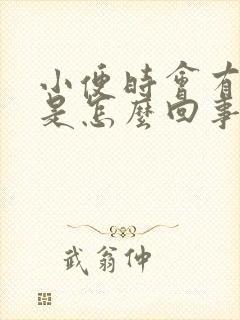 小便時會有
是怎麼回事
武翁仲